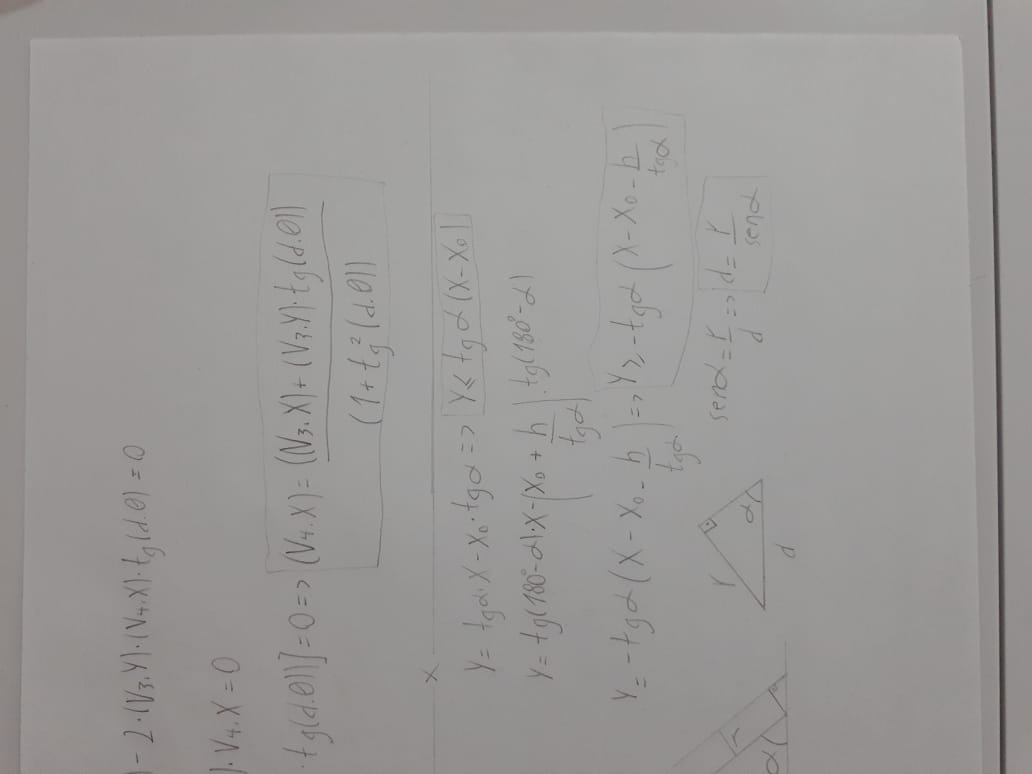 ) - 2·(V₃.Y)·(V₄.X)·tg(d.θ) = 0
)·V₄.X = 0
·tg(d.θ))] = 0 => (V₄.X) = ((V₃.X) + (V₃.Y)·tg(d.θ)) / (1 + tg²(d.θ))
x
Y = tgα·X - X₀·tgα => Y ≤ tgα(X - X₀)
Y = tg(180° - α)·X - (X₀ + h/tgα)·tg(180° - α)
Y = -tgα(X - X₀ - h/tgα) => Y ≥ -tgα(X - X₀ - h/tgα)
r
α
r
α
d
senα = r/d => d = r/senα